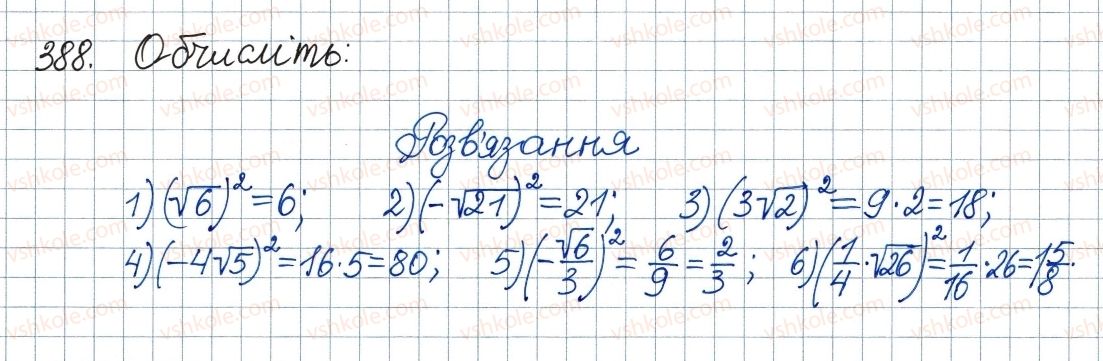 388. Обчисліть:
Розв'язання
1) (√6)² = 6; 2) (-√21)² = 21; 3) (3√2)² = 9·2 = 18;
4) (-4√5)² = 16·5 = 80; 5) (-√6/3)² = 6/9 = 2/3; 6) (1/4·√26)² = 1/16·26 = 1 5/8.